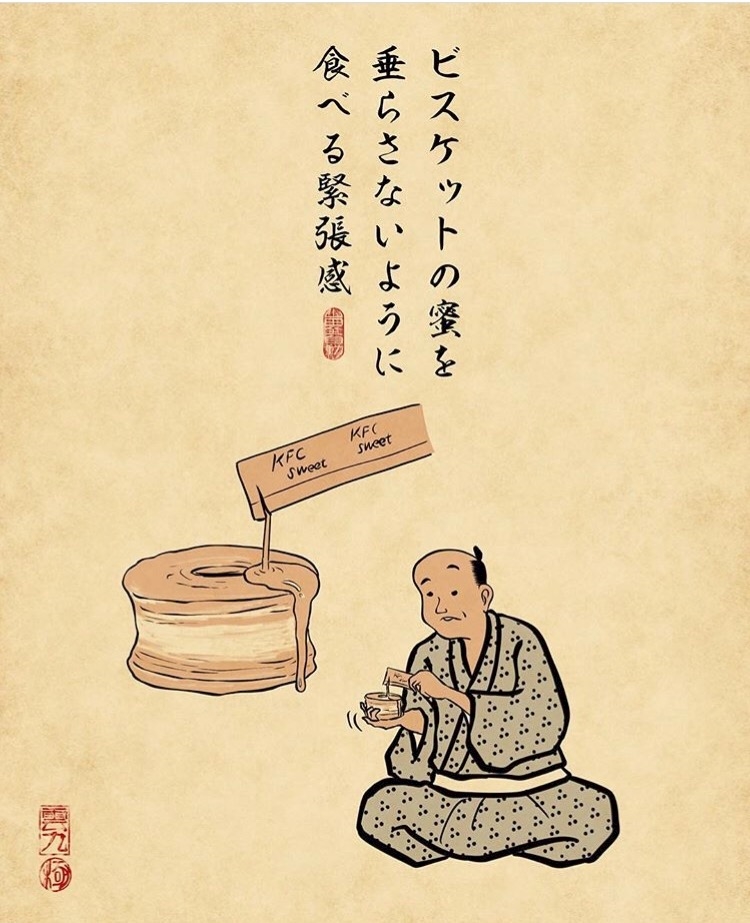 ビスケットの蜜を
垂らさないように
食べる緊張感
KFC
sweet
KFC
sweet